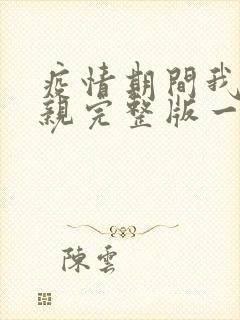 疫情期間我
親完整版一
陳雲